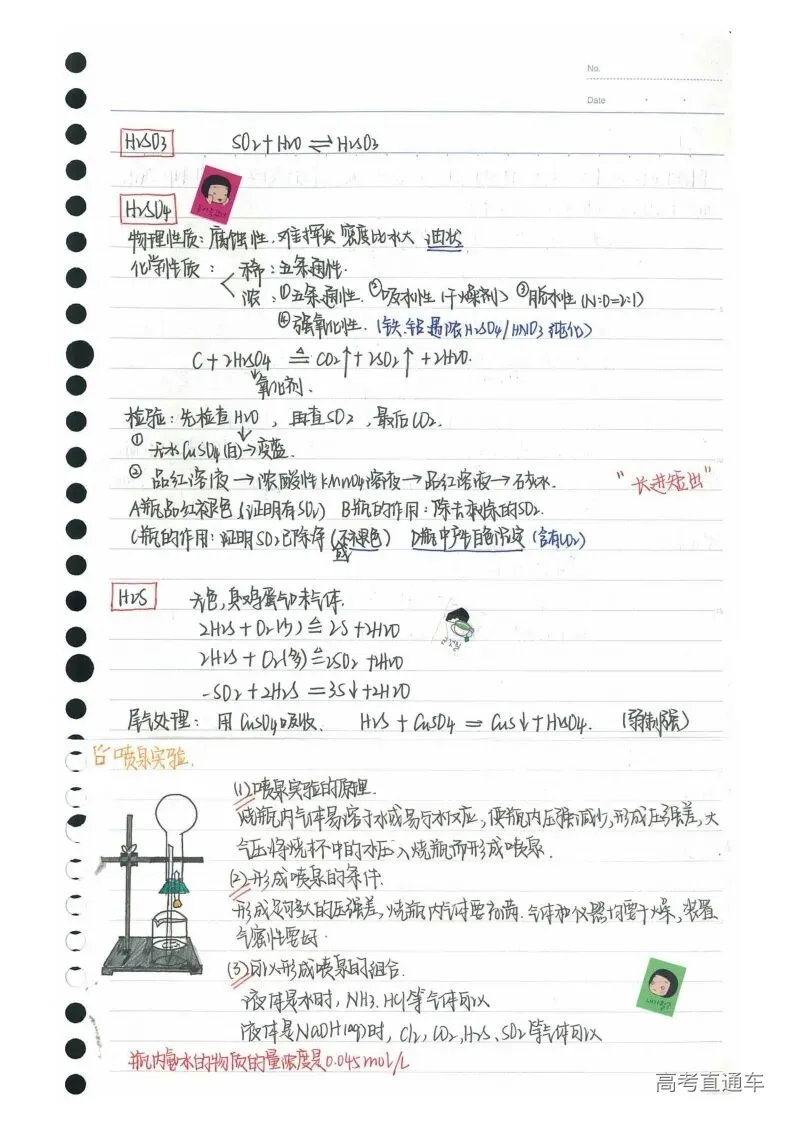 No.
Date
H2SO3 SO2+H2O⇌H2SO3
H2SO4
物理性质：腐蚀性.难挥发 密度比水大 油状
化学性质： 稀：五条通性.
浓：①五条通性.②吸水性(干燥剂)③脱水性(H:O=2:1)
④强氧化性.(铁.铝遇浓H2SO4/HNO3 钝化)
C+2H2SO4 ≜ CO2↑+2SO2↑+2H2O.
氧化剂.
检验：先检查H2O，再查SO2，最后CO2.
①无水CuSO4(白)→变蓝.
②品红溶液→浓酸性KMnO4溶液→品红溶液→石灰水. "长进短出"
A瓶品红褪色(证明有SO2) B瓶的作用：除去剩余的SO2.
C瓶的作用：证明SO2已除净(不褪色) D瓶中产生白色沉淀(含有CO2)
H2S 无色,臭鸡蛋气味气体.
2H2S+O2(少)≜2S+2H2O
2H2S+O2(多)≜2SO2+2H2O
SO2+2H2S=3S↓+2H2O
尾气处理：用CuSO4吸收. H2S+CuSO4=CuS↓+H2SO4. (弱制强)
喷泉实验.
(1)喷泉实验的原理.
烧瓶内气体易溶于水或易与水反应,使瓶内压强减少,形成压强差,大
气压将烧杯中的水压入烧瓶而形成喷泉.
(2)形成喷泉的条件.
形成足够大的压强差,烧瓶内气体要充满.气体和仪器均要干燥,装置
气密性要好.
(3)可以形成喷泉的组合.
液体是水时，NH3.HCl等气体可以
液体是NaOH(aq)时，Cl2,CO2,H2S、SO2等气体可以
瓶内氨水的物质的量浓度是0.045mol/L
高考直通车